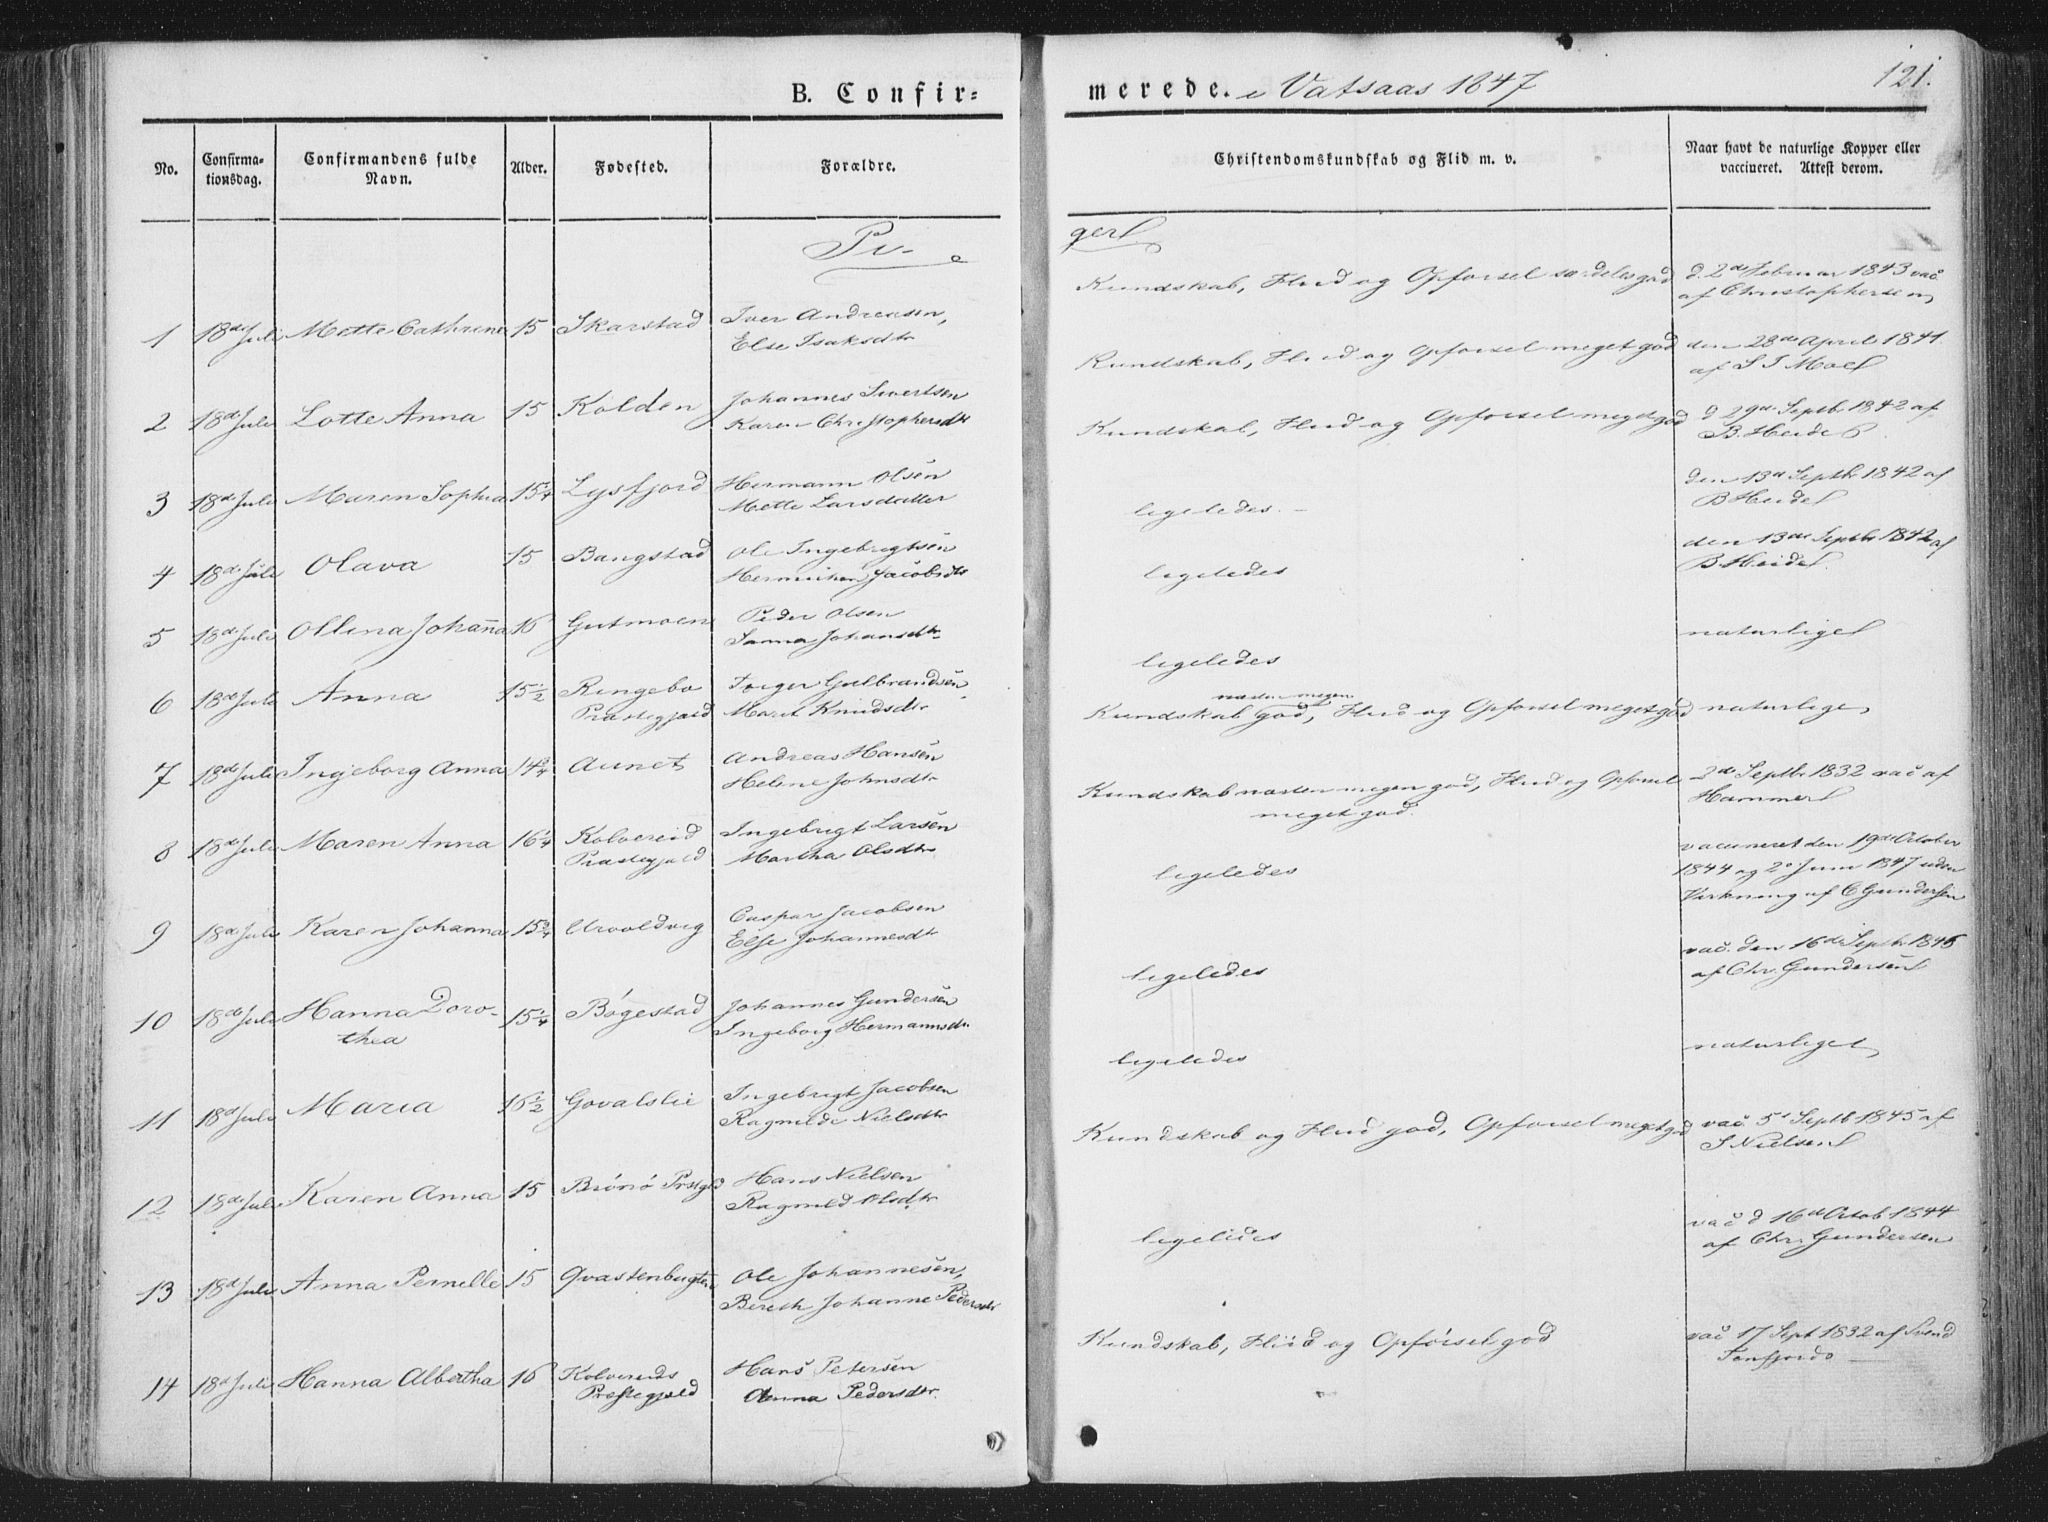 B. Confir-
merede. i Vatsaas 1847
121.
No.
Confirma-
tionsdag.
Confirmandens fulde
Navn.
Alder.
Fødested.
Forældre.
Christendomskundskab og Flid m. v.
Naar havt de naturlige Kopper eller
vaccineret. Attest derom.
Pi-
ger
1 18de Juli Mette Cathrine 15 Skarstad Iver Andreasen,
Else Isaksdtr
Kundskab, Fliid og Opførsel særdeles god
d. 2de Februar 1843 vac
af Christophersen
2 18de Juli Lotte Anna 15 Kolden Johannes Sivertsen
Karen Christophersdtr
Kundskab, Fliid og Opførsel meget god
den 28de April 1841
af S I Moe
3 18de Juli Maren Sophia 15 1/4 Lysfjord Hermann Olsen
Mette Larsdatter
Kundskab, Fliid og Opførsel meget god
d 29de Septb. 1842 af
B. Heide
4 18de Juli Olava 15 Bangstad Ole Ingebrigtsen
Jacobsdtr
ligeledes.
den 13de Septbr 1842 af
B Heide
5 18de Juli Ollina Johanna 16 Gutmoen Peder Olsen
Johansdtr
ligeledes
den 13de Septbr 1842 af
B. Heide
6 18de Juli Anna 15 1/2 Ringebo
Præstegjæld
Torger Gulbrandsen
Marit Knudsdtr
ligeledes
naturlige
7 18de Juli Ingeborg Anna 14 3/4 Aunet Andreas Hansen
Helene Johnsdtr
næsten megen
Kundskab god, Fliid og Opførsel meget god
naturlige
8 18de Juli Maren Anna 16 1/4 Kolvereid
Præstegjæld
Ingebrigt Larsen
Martha Olsdtr
Kundskab næsten megen god, Fliid og Opførsel
meget god.
2de Septbr 1832 vac af
Hammer
9 18de Juli Karen Johanna 15 3/4 Urvoldvig Caspar Jacobsen
Else Johannesdtr
ligeledes
vaccineret den 19de October
1844 og 2 Juni 1847 uden
Virkning af C Gundersen
10 18de Juli Hanna Doro-
thea
15 1/4 Bøgestad Johannes Gundersen
Ingeborg Hermannsdtr.
ligeledes
vac. den 16de Septbr 1845
af Chr. Gundersen
11 18de Juli Maria 16 1/2 Govalslie Ingebrigt Jacobsen
Ragnilde Nielsdtr
ligeledes
naturlige
12 18de Juli Karen Anna 15 Brønø Prstgld Hans Nielsen
Ragnild Olsdtr
Kundskab og Fliid god, Opførsel meget god
vac. 5 Septb 1845 af
S Nielsen
13 18de Juli Anna Pernelle 15 Qvastenbugten Ole Johannesen,
Bereth Johanne Pedersdtr
ligeledes
vac d 16de Octob 1844
af Chr. Gundersen
14 18de Juli Hanna Albertha 16 Kolvereids
Præstegjæld
Hans Petersen
Anna Pedersdtr.
Kundskab, Fliid og Opførsel god
vac 17 Sept 1832 af Svend